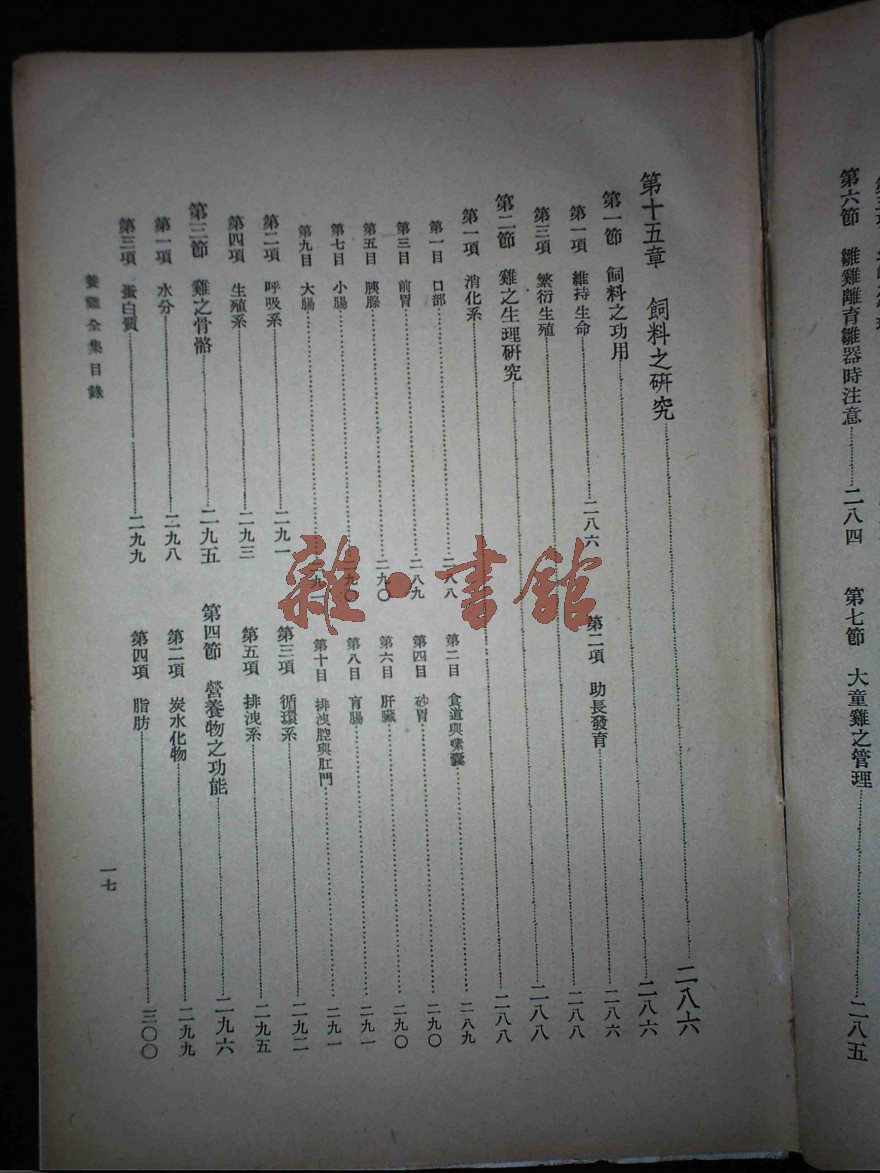 第六節　雛雞離育雛器時注意……二八四　第七節　大童雞之管理……二八五
第十五章　飼料之研究……二八六
第一節　飼料之功用……二八六
第一項　維持生命……二八六　第二項　助長發育……二八六
第三項　繁衍生殖……二八八
第二節　雞之生理研究……二八八
第一項　消化系……二八八
第一目　口部……二八八　第二目　食道與嗉囊……二八九
第三目　前胃……二八九　第四目　砂胃……二九〇
第五目　胰腺……二九〇　第六目　肝臟……二九〇
第七目　小腸……二九〇　第八目　盲腸……二九一
第九目　大腸……二九一　第十目　排洩腔與肛門……二九一
第二項　呼吸系……二九一　第三項　循環系……二九二
第四項　生殖系……二九三　第五項　排洩系……二九五
第三節　雞之骨骼……二九五　第四節　營養物之功能……二九六
第一項　水分……二九八　第二項　炭水化物……二九九
第三項　蛋白質……二九九　第四項　脂肪……三〇〇
養雞全集目錄　一七
雜·書館